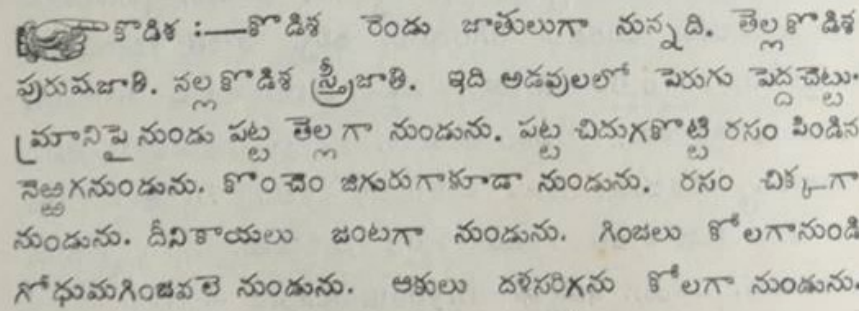 కొడిశ :—కొడిశ రెండు జాతులుగా నున్నది. తెల్లకొడిశ
పురుషజాతి. నల్లకొడిశ స్త్రీజాతి. ఇది అడవులలో పెరుగు పెద్దచెట్టు.
మ్రానిపై నుండు పట్ట తెల్లగా నుండును. పట్ట చిదుగకొట్టి రసం పిండిన
నెఱ్ఱగనుండును. కొంచెం జిగురుగాకూడా నుండును. రసం చిక్కగా
నుండును. దీనికాయలు జంటగా నుండును. గింజలు కోలగానుండి
గోధుమగింజవలె నుండును. ఆకులు దళసరిగను కోలగా నుండును.